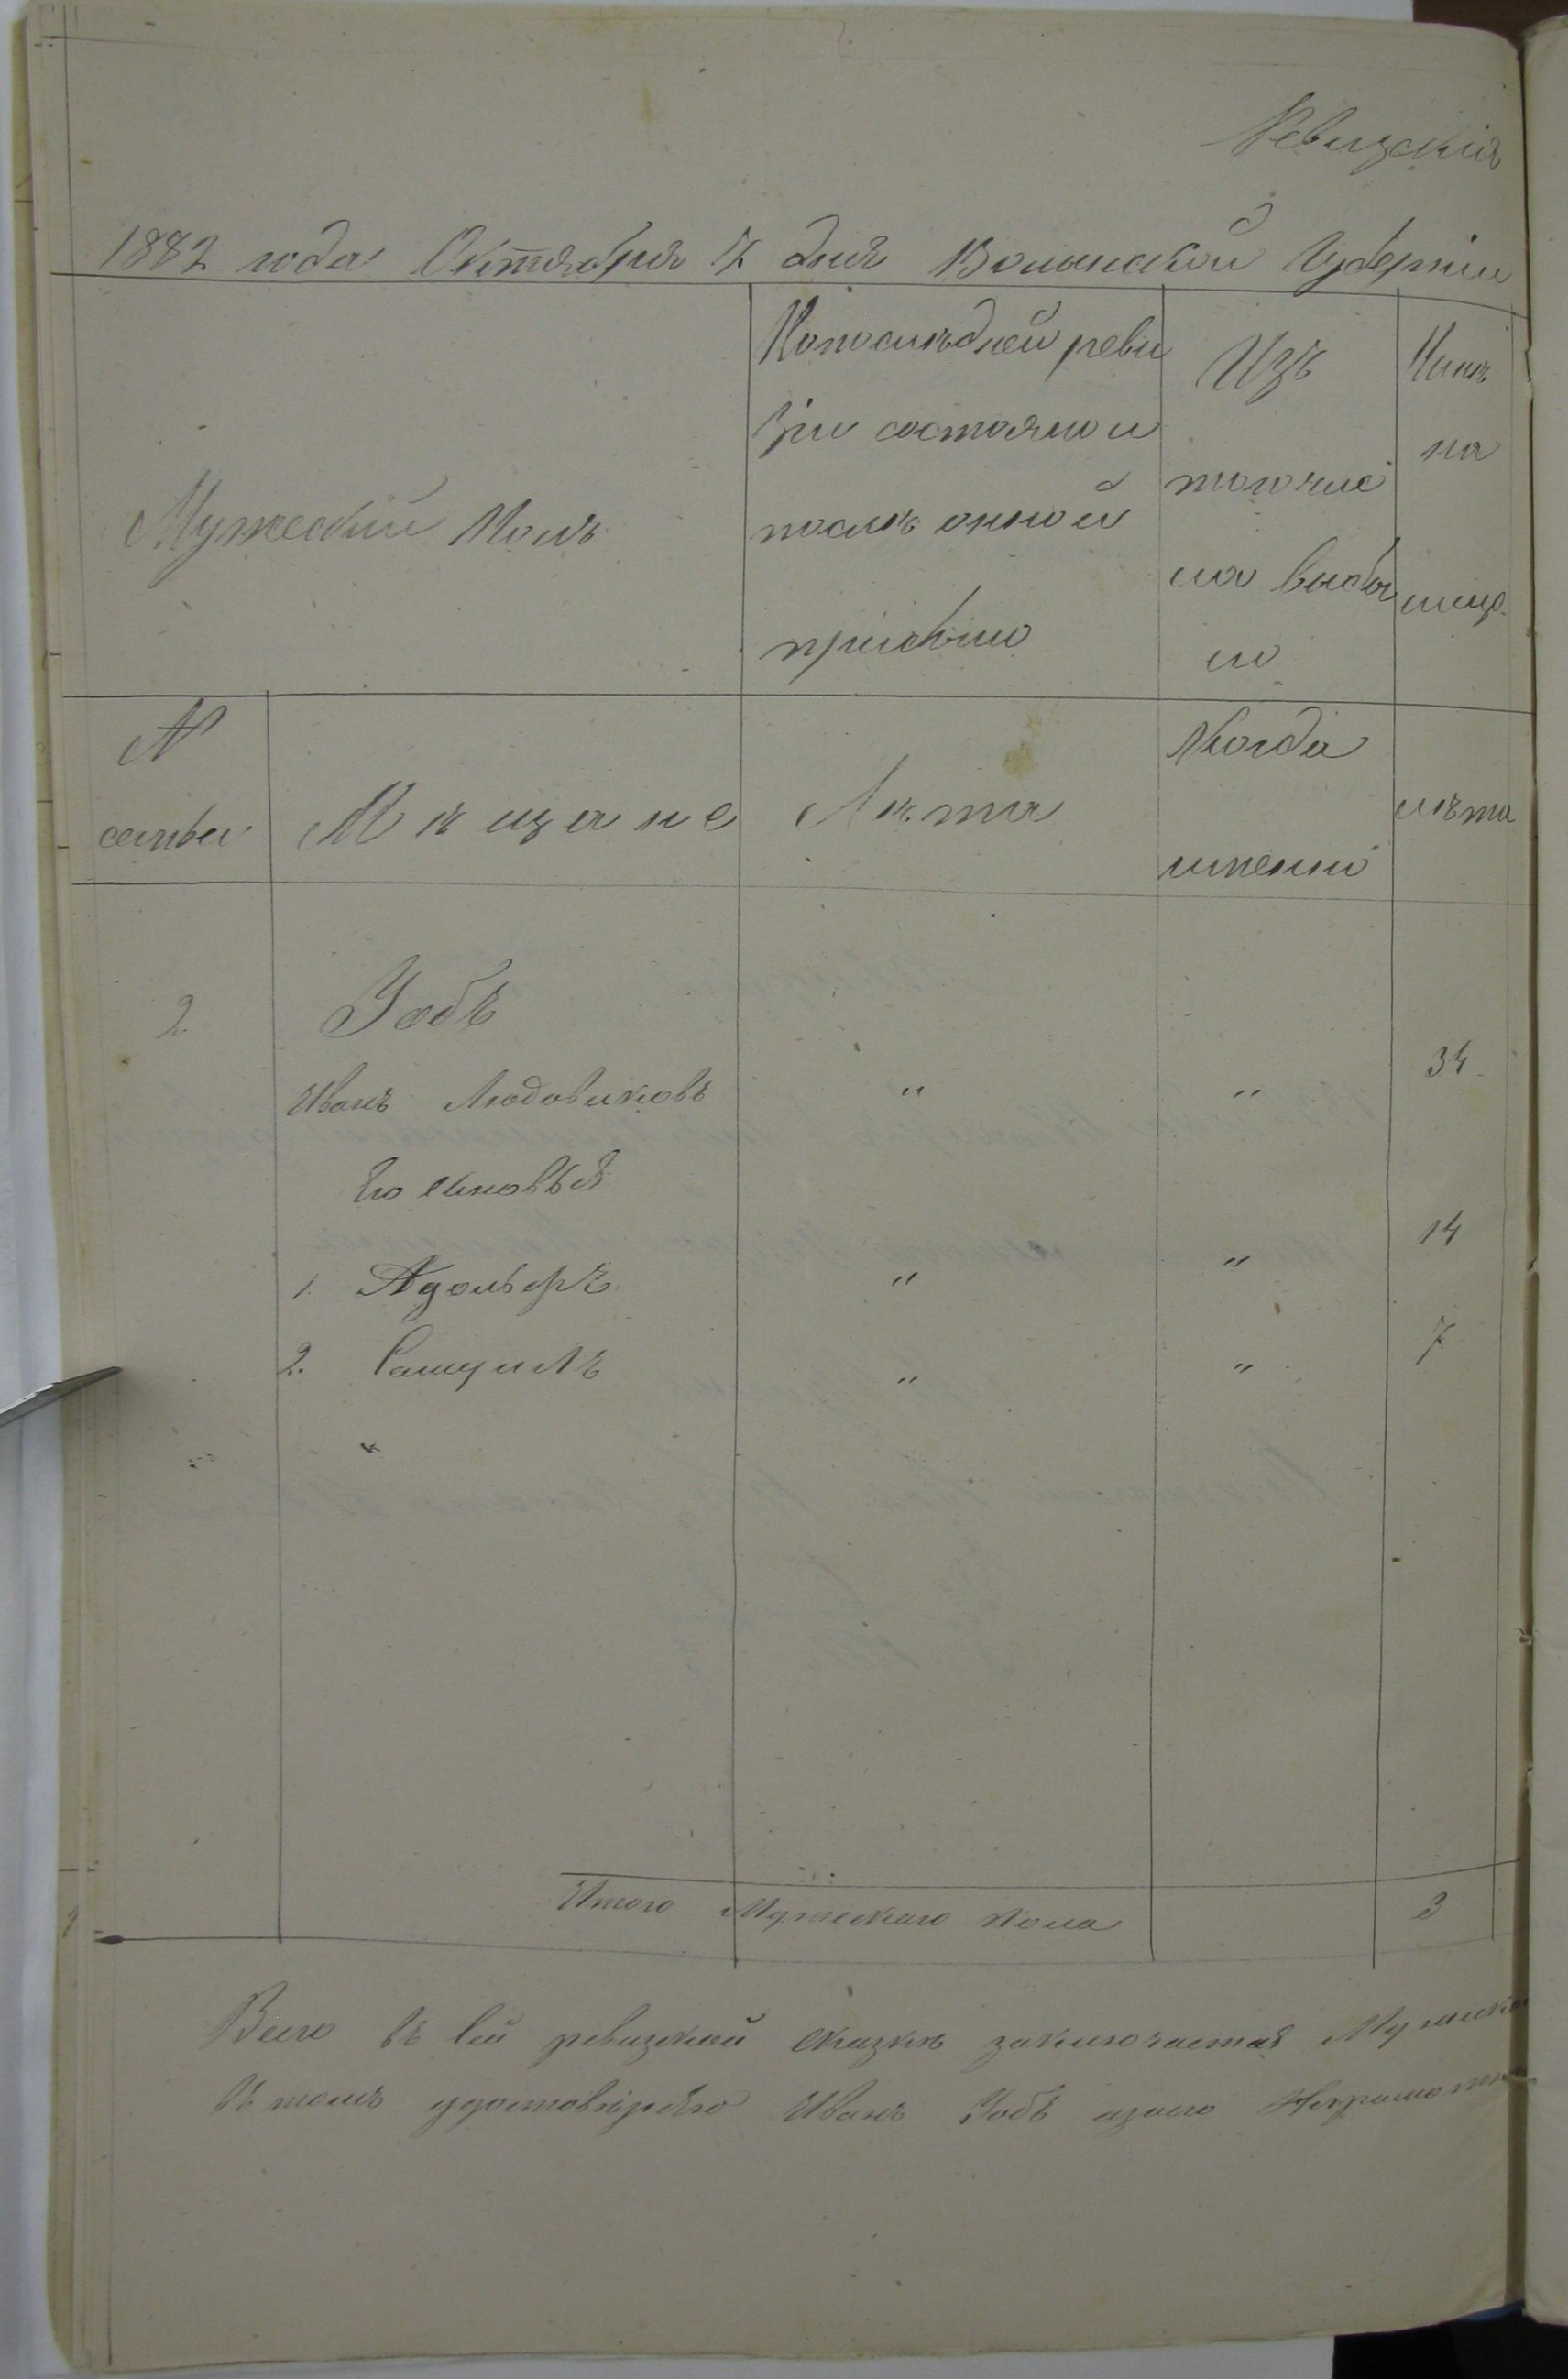 Ревизская
1882 года Октября 7 дня Волынской Губернiи
Мужескiй Полъ
Попослѣдней реви
зiи состояло и
послѣ оной
прибыло
Изъ
того чис
ла выбы
ло
Нынѣ
на
лицо
N
семьи
Мѣщане
Лѣта
Когда
именно
лѣта
2. Гобъ
Иванъ Людовиковъ " " 34
Его сыновья
1. Адольфъ " " 14
2. Самуилъ " " 7
"
Итого Мужескаго пола 3
Всего въ сей ревизской сказкѣ заключается
В томъ удостовѣряю Иванъ Гобъ